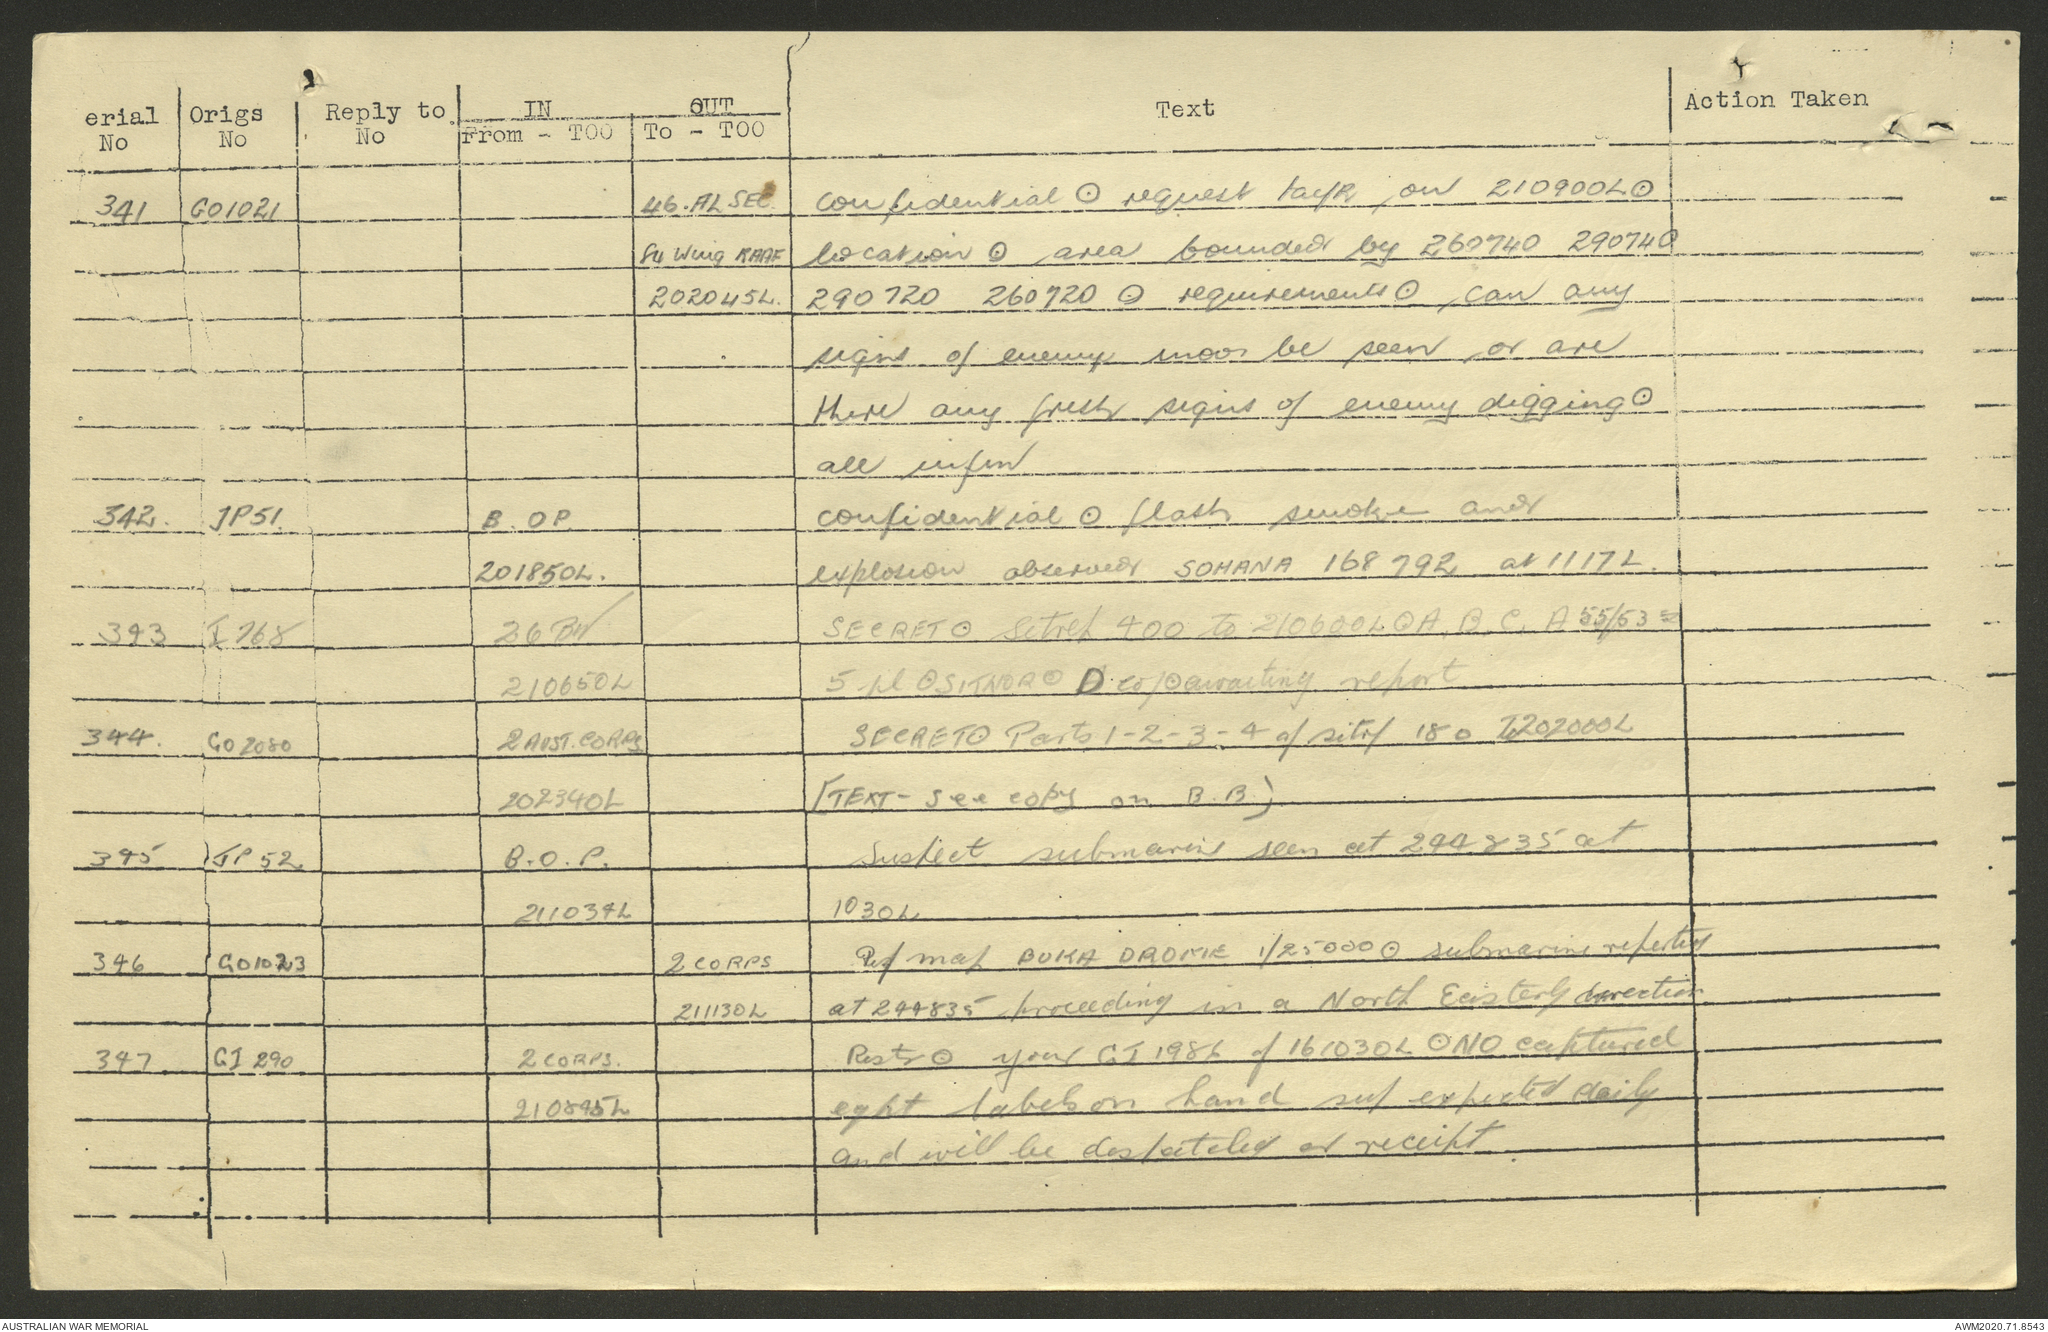 erial No Origs No Reply to No IN From - TOO OUT To - TOO Text Action Taken
341 GO1021 46. AL SEC. Confidential ⊙ request tac/R on 210900L ⊙
84 Wing RAAF location ⊙ area bounded by 260740 290740
202045L. 290720 260720 ⊙ requirements ⊙ can any
signs of enemy mov be seen or are
there any fresh signs of enemy digging ⊙
all infm
342. JP51. B. OP. confidential ⊙ flash smoke and
201850L. explosion observed SOHANA 168792 at 1117L.
343 I 768 26 Bn SECRET ⊙ Sitrep 400 to 210600L ⊙ A. B. C. A 55/53
210650L 5 pl ⊙ SITNOR ⊙ D coy ⊙ awaiting report
344. GO2080 2 AUST. CORPS SECRET ⊙ Parts 1-2-3-4 of sitrep 180 To 202000L
202340L (TEXT - See copy on B.B.)
345 JP 52. B.O.P. Suspect submarine seen at 244835 at
211034L 1030L
346 GO1023 2 CORPS Ref map BUKA DROME 1/25000 ⊙ submarine reported
211130L at 244835 proceeding in a North Easterly direction
347. GI 290 2 CORPS. Restr ⊙ your GI 198 of 161030L ⊙ NO captured
210845L eqpt labels on hand sup expected daily
and will be despatched on receipt
AUSTRALIAN WAR MEMORIAL AWM2020.71.8543